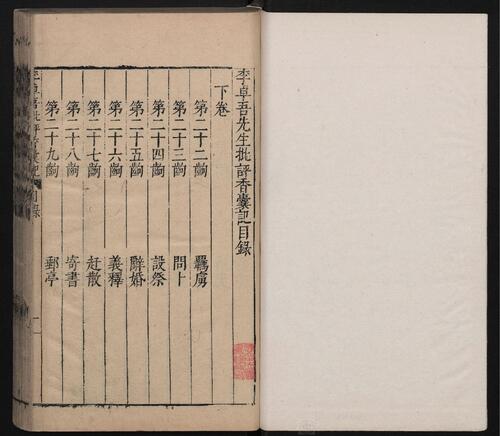 李卓吾先生批評香囊記目錄
下卷
第二十二齣 羈虜
第二十三齣 問卜
第二十四齣 設祭
第二十五齣 辭婚
第二十六齣 義釋
第二十七齣 赶散
第二十八齣 寄書
第二十九齣 郵亭
李卓吾批評香囊記 目錄 二